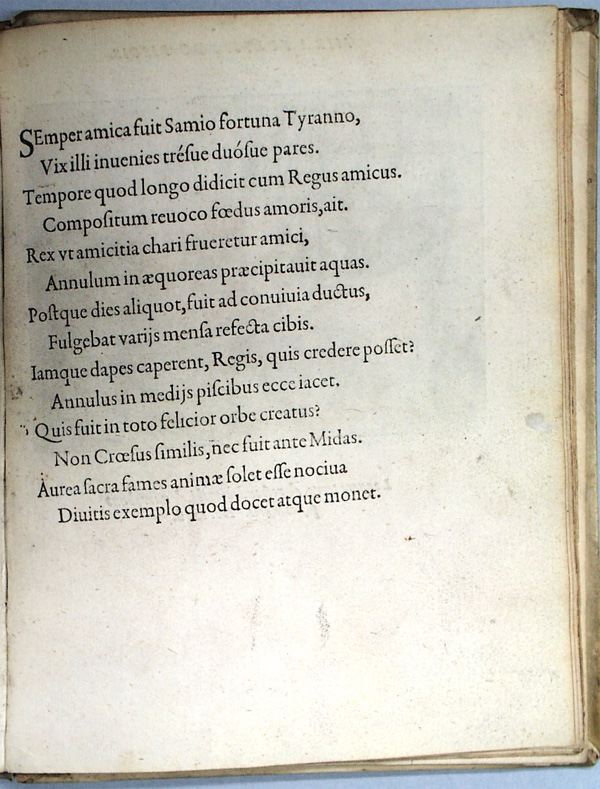 SEmper amica fuit Samio fortuna Tyranno,
Vix illi inuenies trésue duósue pares.
Tempore quod longo didicit cum Regus amicus.
Compoſitum reuoco fœdus amoris, ait.
Rex vt amicitia chari frueretur amici,
Annulum in æquoreas præcipitauit aquas.
Poſtque dies aliquot, fuit ad conuiuia ductus,
Fulgebat varijs menſa refecta cibis.
Iamque dapes caperent, Regis, quis credere poſſet?
Annulus in medijs piſcibus ecce iacet.
Quis fuit in toto felicior orbe creatus?
Non Crœſus ſimilis, nec fuit ante Midas.
Aurea ſacra fames animæ ſolet eſſe nociua
Diuitis exemplo quod docet atque monet.